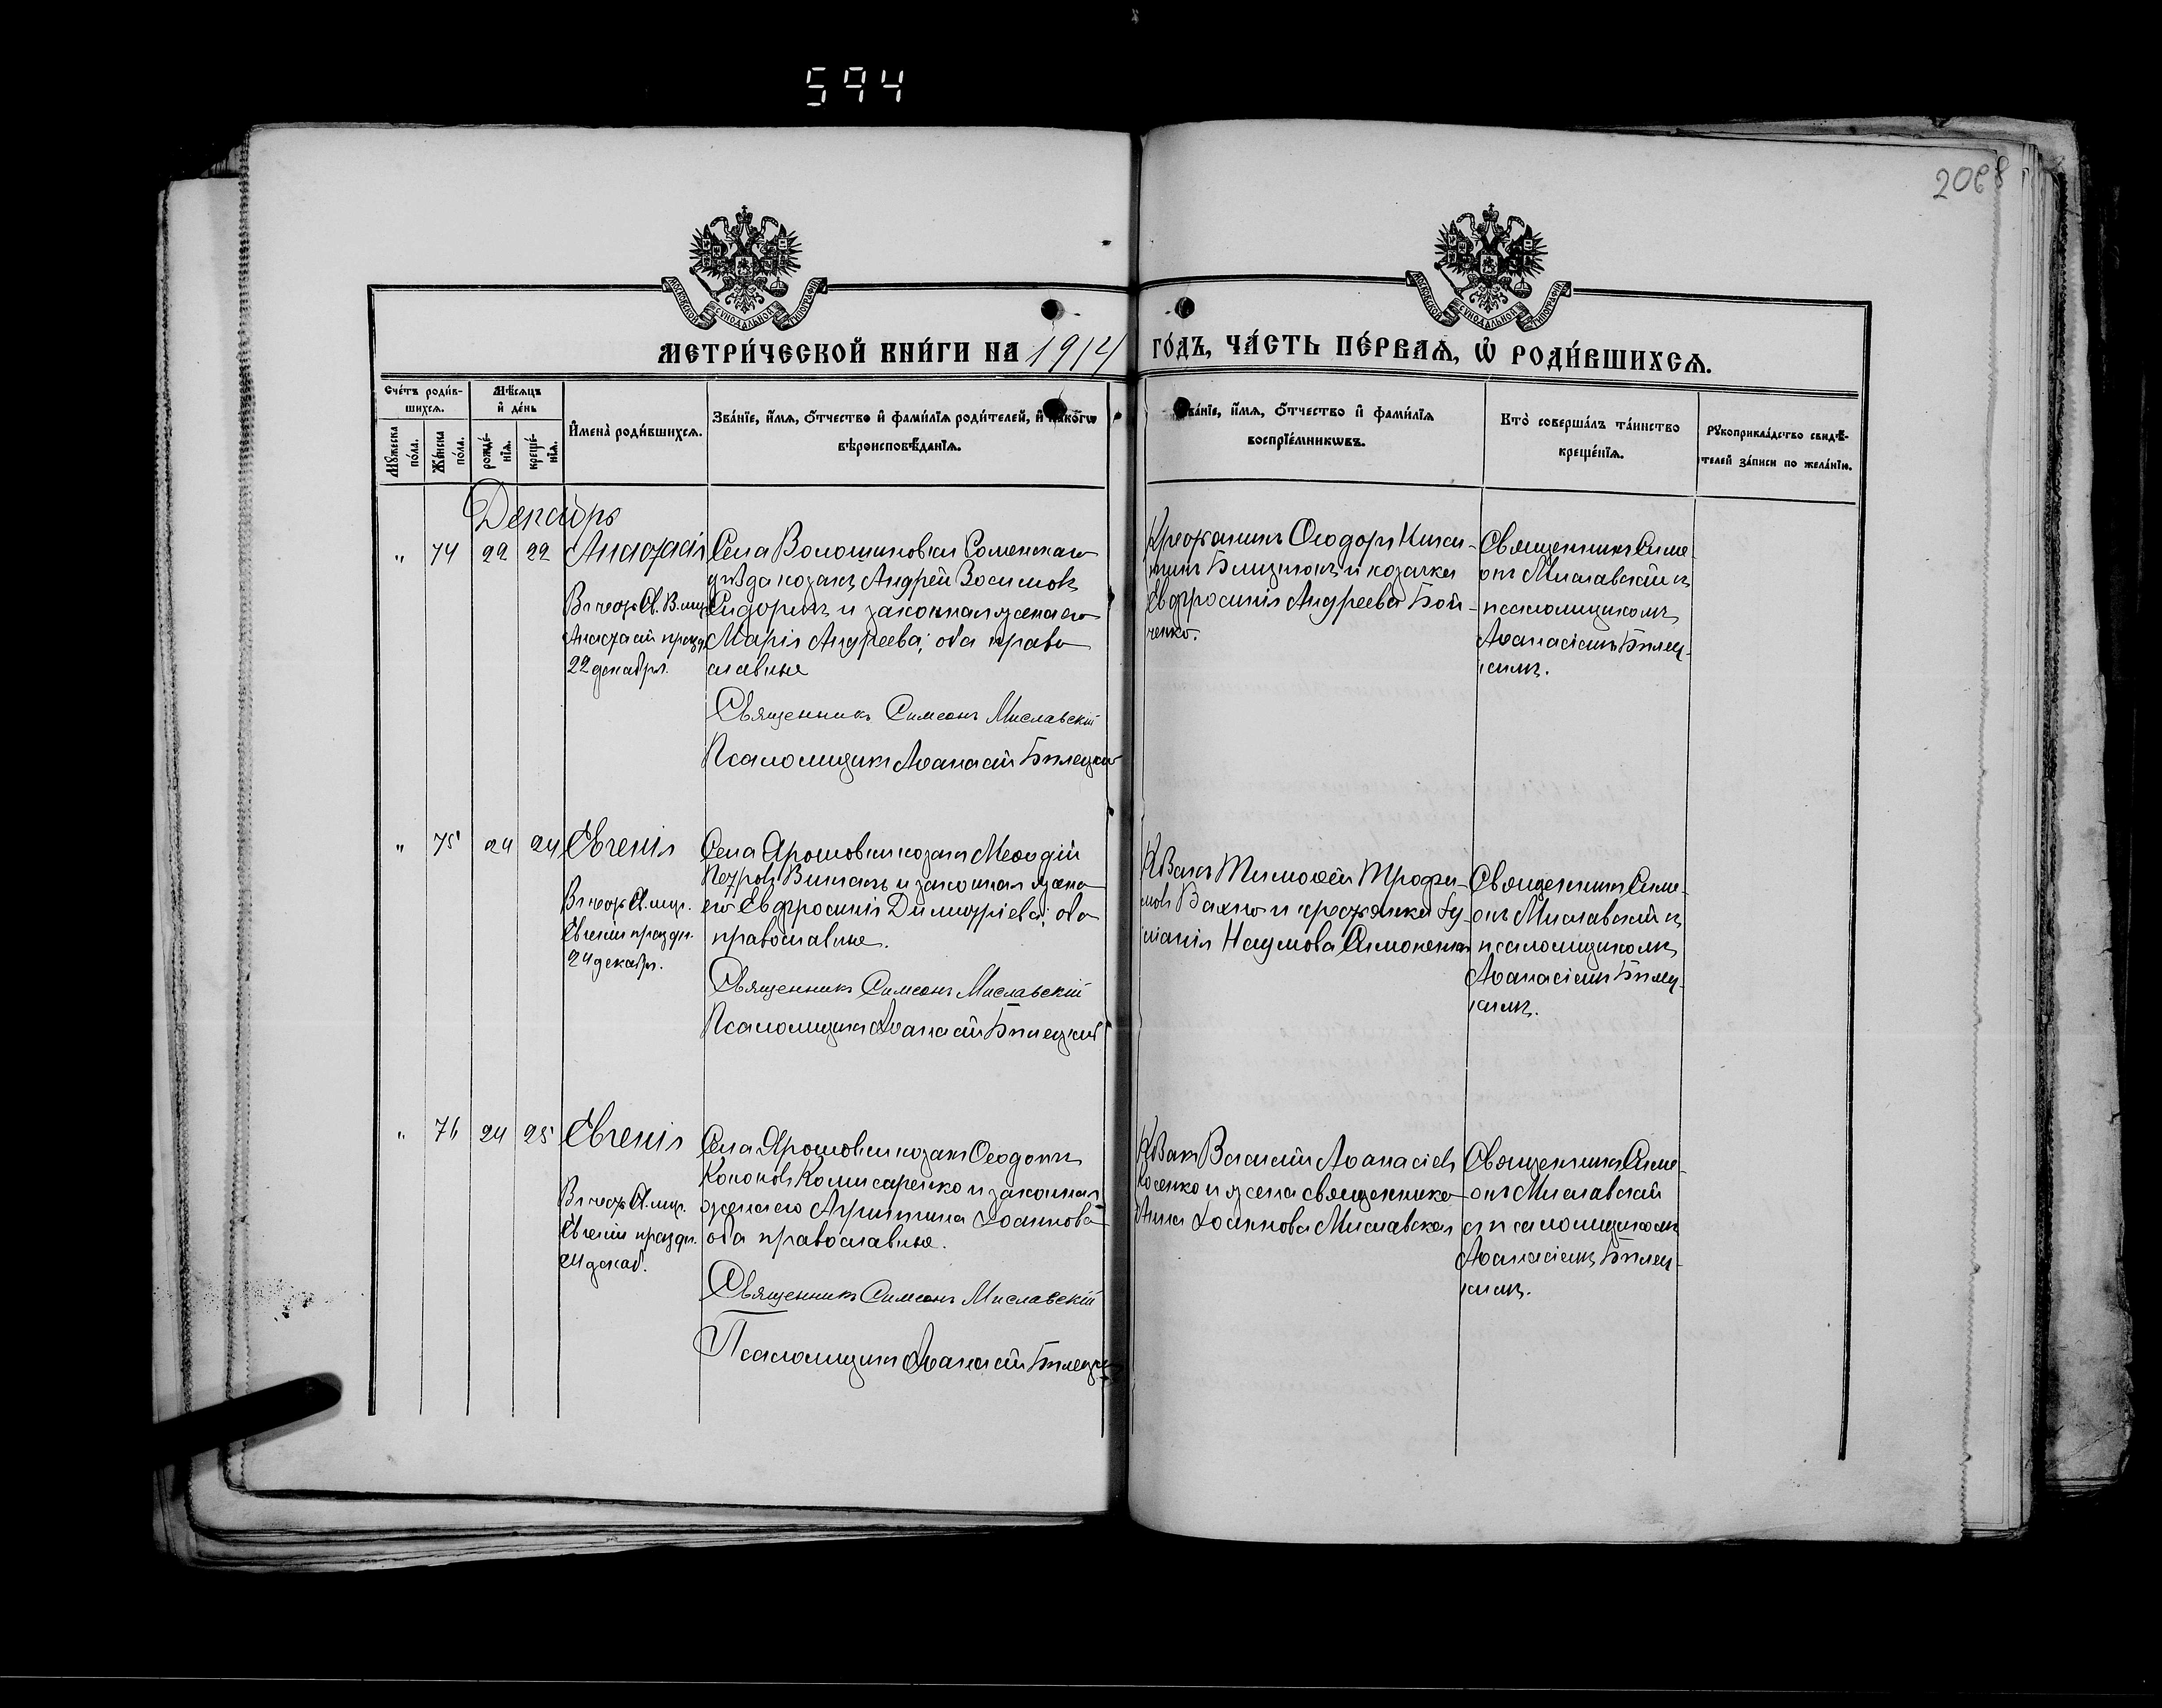 594
2068
МОСКОВСКОЙ СѴНОДАЛЬНОЙ ТИПОГРАФІИ
МОСКОВСКОЙ СѴНОДАЛЬНОЙ ТИПОГРАФІИ
МЕТРИ́ЧЕСКОЙ КНИ́ГИ НА 1914 ГО́ДЪ, ЧА́СТЬ ПЕ́РВАѦ, Ѽ РОДИ́ВШИХСѦ.
Сче́тъ роди́в-
шихсѧ.
Мꙋ́жеска по́ла.
Же́нска по́ла.
Мѣ́сѧцъ и҆ де́нь
рожде́-нїѧ.
креще́-нїѧ.
И҆мена̀ роди́вшихсѧ.
Зва́нїе, и҆́мѧ, ѻ҆́тчество и҆ фами́лїѧ роди́телей, и҆ како́гѡ
вѣроисповѣ́данїѧ.
Зва́нїе, и҆́мѧ, ѻ҆́тчество и҆ фами́лїѧ
воспрїе́мникѡвъ.
Кто̀ соверша́лъ та́инство
креще́нїѧ.
Рꙋкоприкла́дство свидѣ́-
телей за́писи по жела́нїю.
Декабрь
" 74 22 22 Анастасія
Въ честь Св. В. муч.
Анастасіи празд.
22 декабря.
Села Волошиновки Роменскаго
уѣзда козакъ Андрей Зосимовъ
Сидоренк и законная жена его
Марія Андреева; оба право
славные
Священникъ Симеонъ Миславскій
Псаломщикъ Аѳанасій Бѣлецкій
Крестьянинъ Ѳеодоръ Ники-
тинъ Близнюкъ и козачка
Евфросинія Андреева Бой-
ченко.
Священникъ Симе-
онъ Миславскій съ
псаломщикомъ
Аѳанасіемъ Бѣлец-
кимъ.
" 75 24 24 Евгенія
Въ честь Св. муч.
Евгеніи праздн.
24 декабря.
Села Ярошовки козакъ Меѳодій
Петровъ и законная жена
его Евфросинія Димитріева; оба
православные.
Священникъ Симеонъ Миславскій
Псаломщикъ Аѳанасій Бѣлецкій
Козакъ Тимоѳей Трофи-
мовъ Вахно и крестьянка Іу-
ліанія Наумова Симоненко
Священникъ Симе-
онъ Миславскій съ
псаломщикомъ
Аѳанасіемъ Бѣлец-
кимъ.
" 76 24 25 Евгенія
Въ честь Св. муч.
Евгеніи праздн.
24 декаб.
Села Ярошовки козакъ Ѳеодотъ
Кононовъ Комисаренко и законная
жена его Агриппина Іоаннова
оба православные.
Священникъ Симеонъ Миславскій
Псаломщикъ Аѳанасій Бѣлецкій
Козакъ Василій Аѳанасіевъ
Косенко и жена священника
Анна Іоаннова Миславская
Священникъ Симе-
онъ Миславскій
съ псаломщикомъ
Аѳанасіемъ Бѣлец-
кимъ.